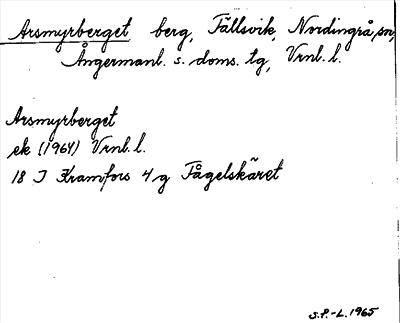 Arsmyrberget berg, Fällsvik, Nordingrå sn,
Ångermanl. s. doms. tg, Vrnl. l.
Arsmyrberget
ek (1964) Vrnl. l.
18 J Kramfors 4 g Fågelskäret
S.P.-L. 1965